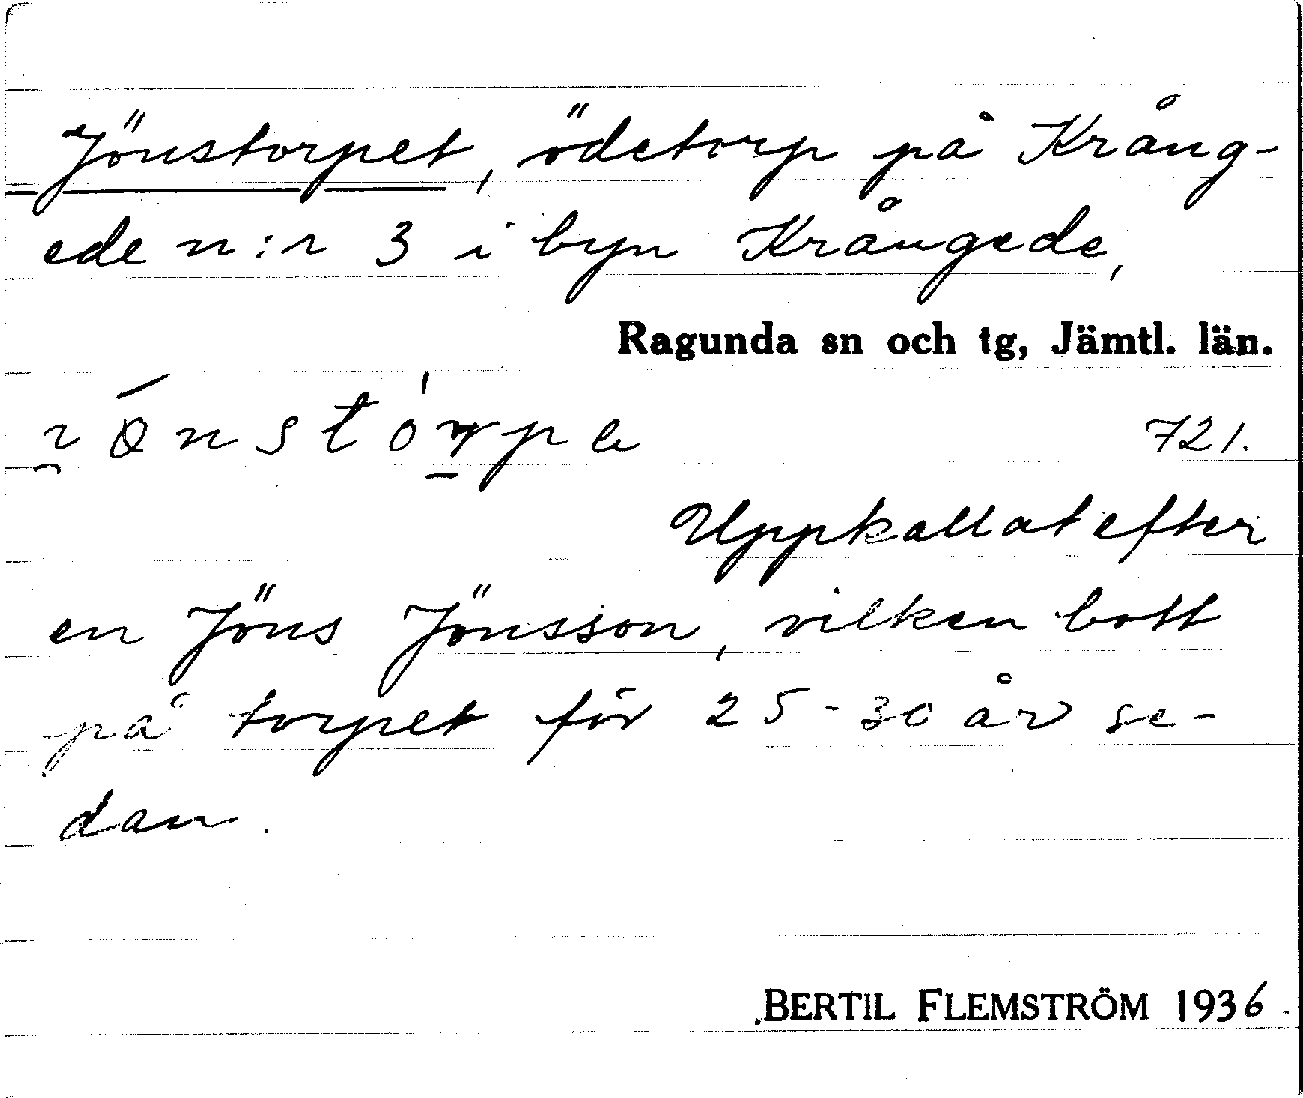 Jönstorpet, ödetorp på Krång-
ede n:r 3 i byn Krångede,
Ragunda sn och tg, Jämtl. län.
721.
Uppkallat efter
en Jöns Jönsson, vilken bott
på torpet för 25-30 år se-
dan.
BERTIL FLEMSTRÖM 1936